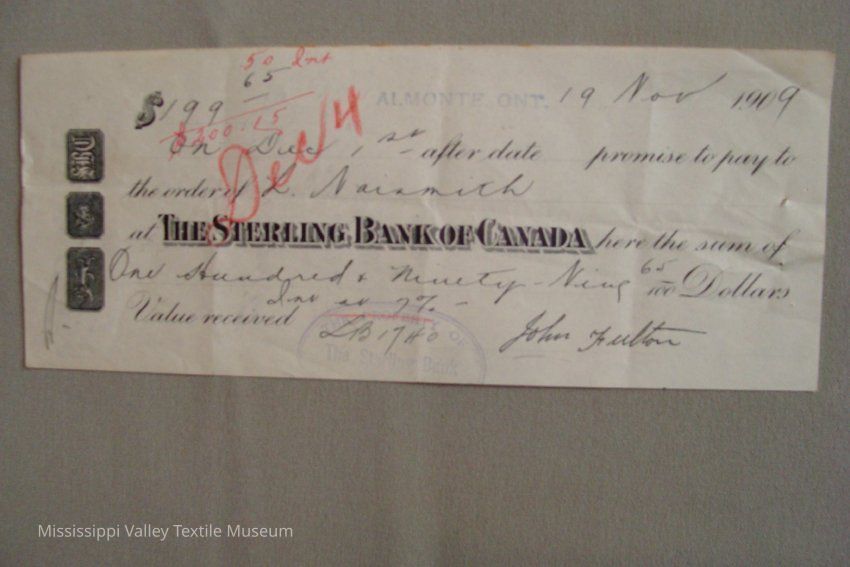 50 Int
65
$199
$200.15
ALMONTE, ONT. 19 Nov 1909
On Dec 1st after date promise to pay to
Dec 4
the order of L. Naismith
at THE STERLING BANK OF CANADA here the sum of
One Hundred & Ninety-Nine 65/100 Dollars
Int at 7% -
Value received
LB 1740
John Fulton
PROPERTY OF
The Sterling Bank
Mississippi Valley Textile Museum